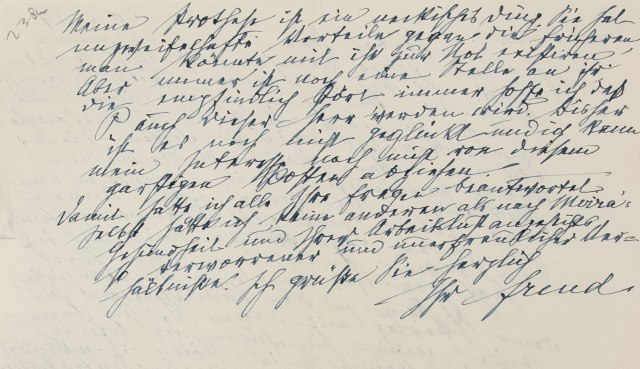 Meine Prothese ist ein neckisches Ding. Sie hat
unzweifelhafte Vorteile gegen die früheren
man könnte mit ihr zur Not existiren
Aber immer ist noch eine Stelle an ihr
die empfindlich stört immer hoffe ich daß
P auch dieser Herr werden wird. Bisher
ist es noch nicht geglückt und ich kann
mein Interesse noch nicht von diesem
garstigen Posten abziehen.
Damit hätte ich alle Ihre Fragen beantwortet
Selbst hätte ich keine anderen als nach
Gesundheit und Ihrer Arbeitslust angesichts
verworrener und unerfreulicher Ver-
hältniße. Ich grüße Sie herzlich
Ihr Freud